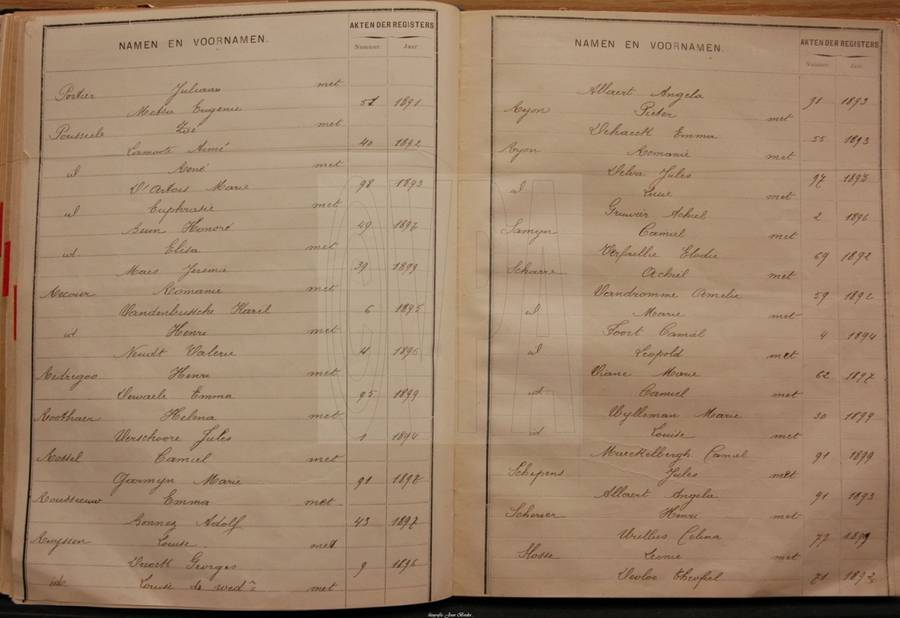 NAMEN EN VOORNAMEN.
AKTEN DER REGISTERS
Nummer. Jaar.
Portier Juliaan met
Eugenie 51 1891
Pousseele Zoé met
Aimé 40 1892
id René met
D'Artois Marie 98 1893
id Euphrasie met
Beun Honoré 49 1897
id Elisa met
Maes Jeremie 39 1899
Romanie met
Vandenbussche Karel 6 1895
id Henri met
Neudt Valerie 11 1896
Rodrigos Henri met
Dewaele Emma 95 1899
Roothaer Helena met
Verschoore Jules 1 1894
Rossel Camiel met
Garmyn Marie 91 1897
Rousseeuw Emma met
Bonnez Adolf 43 1897
Ruyssen Louise met
Georges 9 1896
Louise de wed.ᵉ met
NAMEN EN VOORNAMEN.
AKTEN DER REGISTERS
Nummer. Jaar.
Allaert Angela 91 1893
Ryon Pieter met
Dehaeck Emma 55 1893
Ryon Romanie met
Delva Jules 97 1893
id met
Gruwier Achiel 2 1896
Samyn Camiel met
Verfaillie Elodie 69 1892
Scharre Achiel met
Vandromme Amelie 59 1892
id Marie met
Foort Camiel 4 1894
id Leopold met
Viane Marie 62 1897
id Camiel met
Wylleman Marie 30 1899
id Louise met
Muyckelbergh Camiel 91 1899
Schepens Jules met
Allaert Angela 91 1893
Scherier Henri met
Celina 77 1899
Slosse Leonie met
Theofiel 71 1892